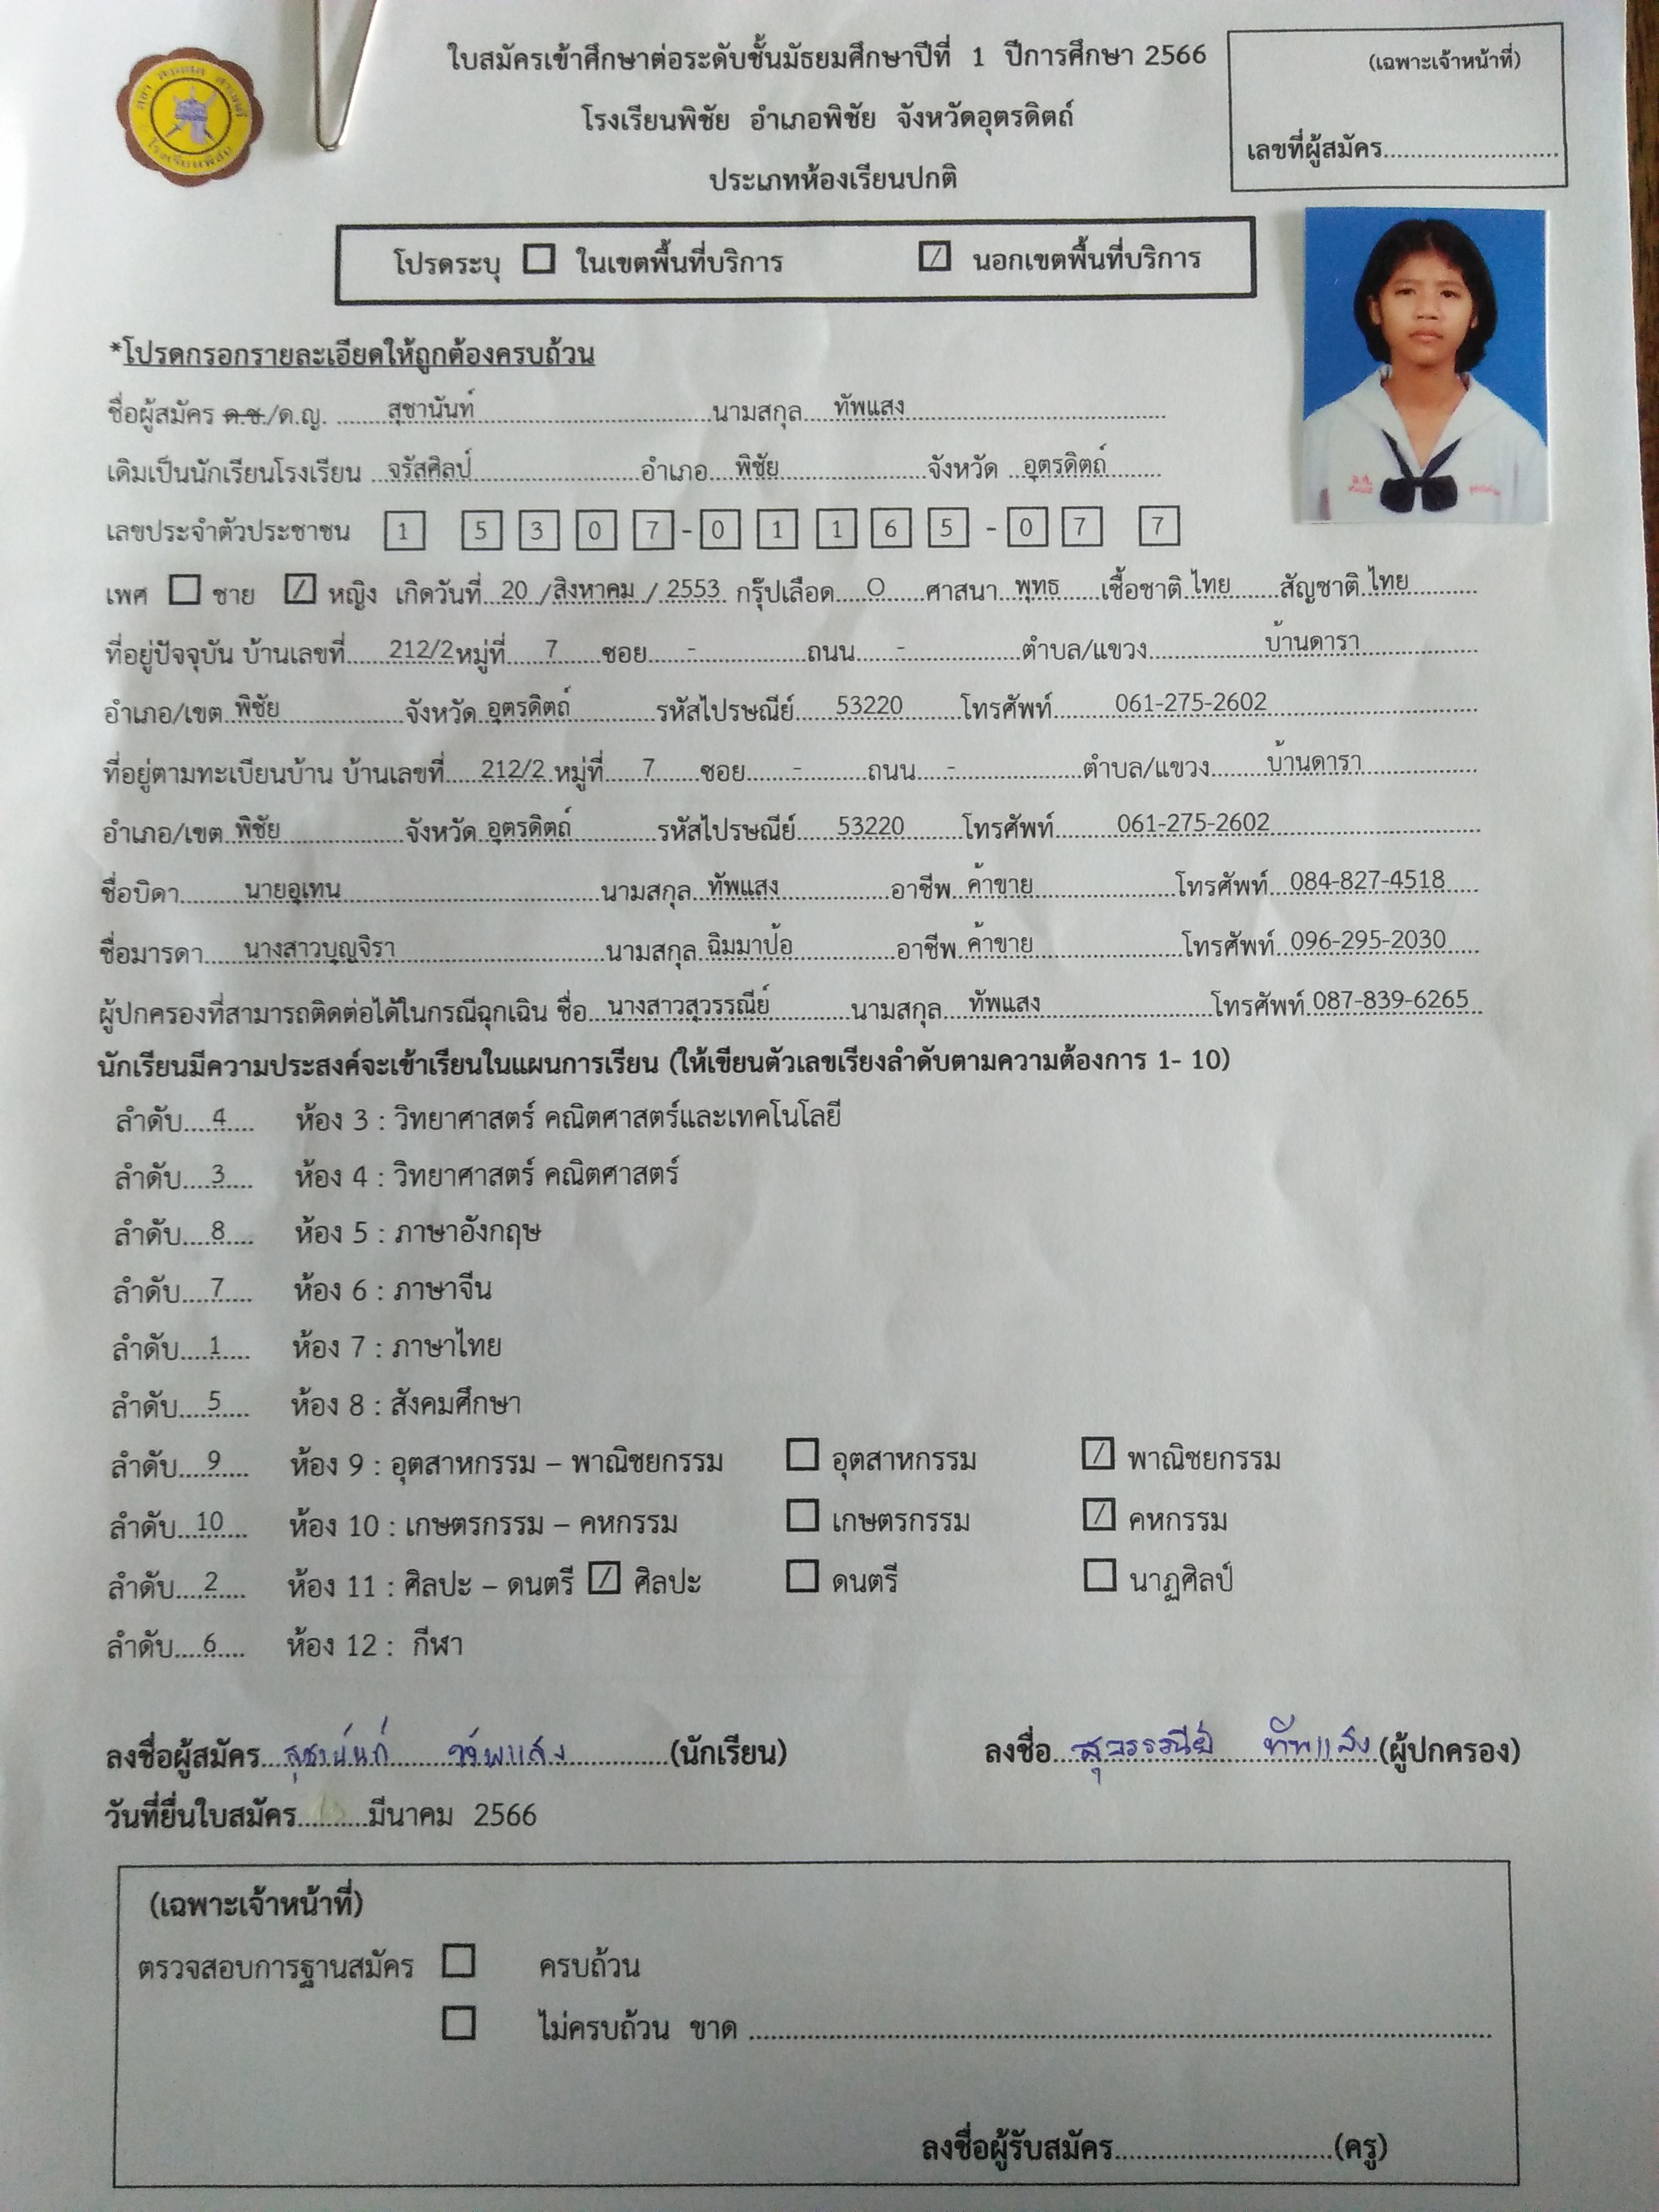 ใบสมัครเข้าศึกษาต่อระดับชั้นมัธยมศึกษาปีที่ 1 ปีการศึกษา 2566
(เฉพาะเจ้าหน้าที่)
โรงเรียนพิชัย อำเภอพิชัย จังหวัดอุตรดิตถ์
เลขที่ผู้สมัคร
ประเภทห้องเรียนปกติ
โปรดระบุ ในเขตพื้นที่บริการ / นอกเขตพื้นที่บริการ
*โปรดกรอกรายละเอียดให้ถูกต้องครบถ้วน
ชื่อผู้สมัคร ด.ช./ด.ญ. สุชานันท์ นามสกุล ทัพแสง
เดิมเป็นนักเรียนโรงเรียน จรัสศิลป์ อำเภอ พิชัย จังหวัด อุตรดิตถ์
เลขประจำตัวประชาชน 1 5 3 0 7 - 0 1 1 6 5 - 0 7 7
เพศ ชาย / หญิง เกิดวันที่ 20 / สิงหาคม / 2553 กรุ๊ปเลือด O ศาสนา พุทธ เชื้อชาติ ไทย สัญชาติ ไทย
ที่อยู่ปัจจุบัน บ้านเลขที่ 212/2 หมู่ที่ 7 ซอย - ถนน - ตำบล/แขวง บ้านดารา
อำเภอ/เขต พิชัย จังหวัด อุตรดิตถ์ รหัสไปรษณีย์ 53220 โทรศัพท์ 061-275-2602
ที่อยู่ตามทะเบียนบ้าน บ้านเลขที่ 212/2 หมู่ที่ 7 ซอย - ถนน - ตำบล/แขวง บ้านดารา
อำเภอ/เขต พิชัย จังหวัด อุตรดิตถ์ รหัสไปรษณีย์ 53220 โทรศัพท์ 061-275-2602
ชื่อบิดา นายอุเทน นามสกุล ทัพแสง อาชีพ ค้าขาย โทรศัพท์ 084-827-4518
ชื่อมารดา นางสาวบุญจิรา นามสกุล ฉิมมาป้อ อาชีพ ค้าขาย โทรศัพท์ 096-295-2030
ผู้ปกครองที่สามารถติดต่อได้ในกรณีฉุกเฉิน ชื่อ นางสาวสุวรรณีย์ นามสกุล ทัพแสง โทรศัพท์ 087-839-6265
นักเรียนมีความประสงค์จะเข้าเรียนในแผนการเรียน (ให้เขียนตัวเลขเรียงลำดับตามความต้องการ 1- 10)
ลำดับ 4 ห้อง 3 : วิทยาศาสตร์ คณิตศาสตร์และเทคโนโลยี
ลำดับ 3 ห้อง 4 : วิทยาศาสตร์ คณิตศาสตร์
ลำดับ 8 ห้อง 5 : ภาษาอังกฤษ
ลำดับ 7 ห้อง 6 : ภาษาจีน
ลำดับ 1 ห้อง 7 : ภาษาไทย
ลำดับ 5 ห้อง 8 : สังคมศึกษา
ลำดับ 9 ห้อง 9 : อุตสาหกรรม – พาณิชยกรรม อุตสาหกรรม / พาณิชยกรรม
ลำดับ 10 ห้อง 10 : เกษตรกรรม – คหกรรม เกษตรกรรม / คหกรรม
ลำดับ 2 ห้อง 11 : ศิลปะ – ดนตรี / ศิลปะ ดนตรี นาฏศิลป์
ลำดับ 6 ห้อง 12 : กีฬา
ลงชื่อผู้สมัคร สุชานันท์ ทัพแสง (นักเรียน) ลงชื่อ สุวรรณีย์ ทัพแสง (ผู้ปกครอง)
วันที่ยื่นใบสมัคร มีนาคม 2566
(เฉพาะเจ้าหน้าที่)
ตรวจสอบการฐานสมัคร ครบถ้วน
ไม่ครบถ้วน ขาด
ลงชื่อผู้รับสมัคร (ครู)